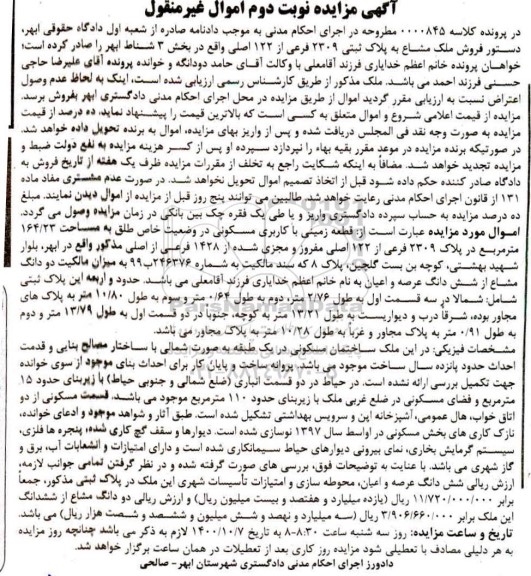 آگهی مزایده نوبت دوم اموال غیرمنقول
در پرونده کلاسه ۰۰۰۰۸۴۵ مطروحه در اجرای احکام مدنی به موجب دادنامه صادره از شعبه اول دادگاه حقوقی ابهر،
دستور فروش ملک مشاع به پلاک ثبتی ۲۳۰۹ فرعی از ۱۲۲ اصلی واقع در بخش ۳ شناط ابهر را صادر کرده است؛
خواهان پرونده خانم اعظم خدایاری فرزند آقامعلی با وکالت آقای حامد دودانگه و خوانده پرونده آقای علیرضا حاجی
حسنی فرزند احمد می باشد. ملک مذکور از طریق کارشناس رسمی ارزیابی شده است، اینک به لحاظ عدم وصول
اعتراض نسبت به ارزیابی مقرر گردید اموال از طریق مزایده در محل اجرای احکام مدنی دادگستری ابهر بفروش برسد.
مزایده از قیمت اعلامی شروع و اموال متعلق به کسی است که بالاترین قیمت را پیشنهاد نماید، ده درصد از قیمت
مزایده به صورت وجه نقد فی المجلس دریافت شده و پس از واریز بهای مزایده، اموال به برنده تحویل داده خواهد شد.
در صورتیکه برنده مزایده در موعد مقرر بقیه بهاء را نپردازد سپرده او پس از کسر هزینه مزایده به نفع دولت ضبط و
مزایده تجدید خواهد شد. مضافاً به اینکه شکایت راجع به تخلف از مقررات مزایده ظرف یک هفته از تاریخ فروش به
دادگاه صادر کننده حکم داده شود قبل از اتخاذ تصمیم اموال تحویل نخواهد شد. در صورت عدم مشتری مفاد ماده
۱۳۱ از قانون اجرای احکام مدنی رعایت خواهد شد. طالبین می توانند پنج روز قبل از مزایده از اموال دیدن نمایند. مبلغ
ده درصد مزایده به حساب سپرده دادگستری واریز و یا طی یک فقره چک بین بانکی در زمان مزایده وصول می گردد.
اموال مورد مزایده عبارت است از: قطعه زمینی با کاربری مسکونی در وضعیت خاص طلق به مساحت ۱۶۴/۲۳
مترمربع در پلاک ۲۳۰۹ فرعی از ۱۲۲ اصلی مفروز و مجزی شده از ۱۴۲۸ فرعی از اصلی مذکور واقع در ابهر، بلوار
شهید بهشتی، کوچه بن بست گلچین، پلاک ۸ که سند مالکیت به شماره ۲۴۶۳۷۶ب۹۹ به میزان مالکیت دو دانگ
مشاع از شش دانگ عرصه و اعیان به نام خانم اعظم خدایاری فرزند آقامعلی می باشد. حدود و اربعه این پلاک ثبتی
شامل: شمالا در سه قسمت اول به طول ۲/۷۶ متر، دوم به طول ۰/۶۴ متر و سوم به طول ۱۰/۸۰ متر به پلاک های
مجاور بوده، شرقاً درب و دیواریست به طول ۱۳/۲۱ متر به کوچه، جنوبا در دو قسمت اول به طول ۱۳/۷۹ متر و دوم
به طول ۰/۹۱ متر به پلاک مجاور و غرباً به طول ۱۰/۳۸ متر به پلاک مجاور می باشد.
مشخصات فیزیکی: در این ملک ساختمان مسکونی در یک طبقه به صورت شمالی با ساختار مصالح بنایی و قدمت
احداث حدود پانزده سال ساخت موجود می باشد. پروانه ساخت و پایان کار برای احداث بنای موجود از سوی خوانده
جهت تکمیل بررسی ارائه نشده است. در حیاط در دو قسمت انباری (ضلع شمالی و جنوبی حیاط) با زیربنای حدود ۱۵
مترمربع و فضای مسکونی در ضلع غربی ملک با زیربنای حدود ۱۱۰ مترمربع موجود می باشد. قسمت مسکونی از دو
اتاق خواب، هال عمومی، آشپزخانه اپن و سرویس بهداشتی تشکیل شده است. طبق آثار و شواهد موجود و ادعای خوانده،
نازک کاری های بخش مسکونی در اواسط سال ۱۳۹۷ نوسازی شده است. دیوارها و سقف گچ کاری شده، پنجره ها فلزی،
سیستم گرمایش بخاری، نمای بیرونی دیوارهای حیاط سیمانکاری شده است و دارای امتیازات و انشعابات آب، برق و
گاز شهری می باشد. با عنایت به توضیحات فوق، بررسی های صورت گرفته شده و در نظر گرفتن تمامی جوانب لازمه،
ارزش ریالی شش دانگ عرصه و اعیان، محوطه سازی و امتیازات تأسیسات شهری این ملک در پلاک ثبتی مذکور، جمعاً
برابر ۱۱/۷۲۰/۰۰۰/۰۰۰ ریال (یازده میلیارد و هفتصد و بیست میلیون ریال) و ارزش ریالی دو دانگ مشاع از ششدانگ
این ملک برابر ۳/۹۰۶/۶۶۰/۰۰۰ ریال (سه میلیارد و نهصد و شش میلیون و ششصد و شصت هزار ریال) می باشد.
تاریخ و ساعت مزایده: روز سه شنبه ساعت ۸:۳۰-۸ به تاریخ ۱۴۰۰/۱۰/۷ لازم به ذکر می باشد چنانچه روز مزایده
به هر دلیلی مصادف با تعطیلی شود مزایده روز کاری بعد از تعطیلات در همان ساعت برگزار خواهد شد.
دادورز اجرای احکام مدنی دادگستری شهرستان ابهر- صالحی